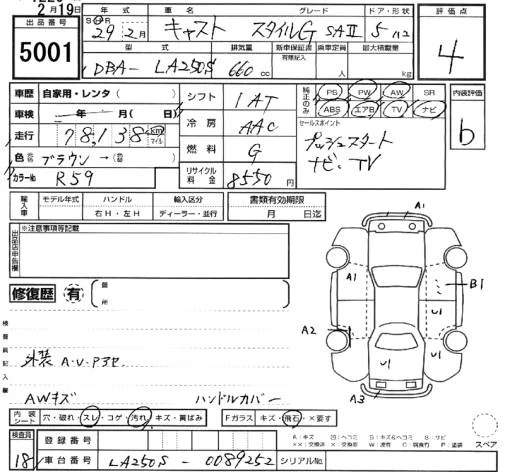 2月19日
出品番号 年式 車名 グレード ドア・形状 評価点
5001 S H 29年 2月 キャスト スタイルG SAⅡ 5 /12 4
型式 排気量 新車保証書 乗車定員 最大積載量
有無記入
DBA- LA250S 660cc 人 kg
車歴 自家用・レンタ( ) シフト 1AT 純正のみ PS PW AW SR 内装評価
車検 年 月(日) 冷房 AAC ABS エアB TV ナビ b
走行 78,138 km マイル 燃料 G セールスポイント
色 ブラウン→ リサイクル料金 8550円 プッシュスタート
カラーNo R59 ナビ、TV
輸入車 モデル年式 ハンドル 輸入区分 書類有効期限
右H・左H ディーラー・並行 月 日迄
※注意事項等記載
修復歴 有 箇所
A1
A1 B1
A2 U1
U1 U1
A3
検査員記入欄
外装 A・U・Pヨセ
AWキズ ハンドルカバー
内装シート 穴・破れ・スレ・コゲ・汚れ・キズ・黄ばみ Fガラス キズ・飛石・×要す
検査員 登録番号 スペア
18 車台番号 LA250S-0089252 シリアルNo.